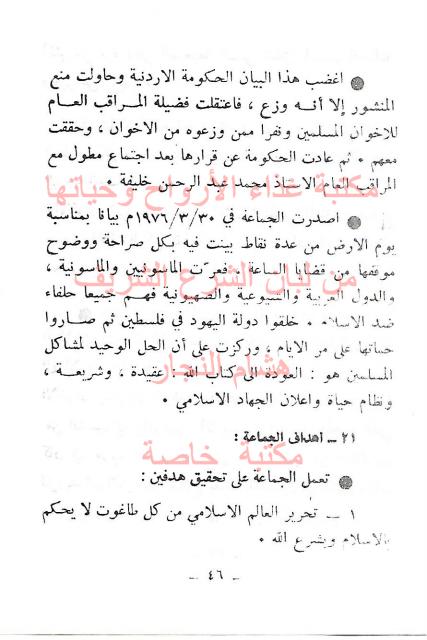 ● اغضب هذا البيان الحكومة الاردنية وحاولت منع
المنشور إلا أنه وزع ، فاعتقلت فضيلة المراقب العام
للاخوان المسلمين ونفرا ممن وزعوه من الاخوان ، وحققت
معهم • ثم عادت الحكومة عن قرارها بعد اجتماع مطول مع
المراقب العام الاستاذ محمد عبد الرحمن خليفة •
مكتبة غذاء الأرواح وحياتها
● اصدرت الجماعة في ١٩٧٦/٣/٣٠م بيانا بمناسبة
يوم الارض من عدة نقاط بينت فيه بكل صراحة ووضوح
موقفها من قضايا الساعة • فعرّت الماسونيين والماسونية ،
من لبان الشرع الشريف
والدول الغربية والشيوعية والصهيونية فهم جميعا حلفاء
ضد الاسلام • خلقوا دولة اليهود في فلسطين ثم صاروا
حماتها على مر الايام ، وركزت على أن الحل الوحيد لمشاكل
هشام النجار
المسلمين هو : العودة الى كتاب الله : عقيدة ، وشريعة ،
ونظام حياة واعلان الجهاد الاسلامي •
٢١ ــ أهداف الجماعة :
مكتبة خاصة
● تعمل الجماعة على تحقيق هدفين :
١ ــ تحرير العالم الاسلامي من كل طاغوت لا يحكم
بالاسلام وبشرع الله •
ــ ٤٦ ــ